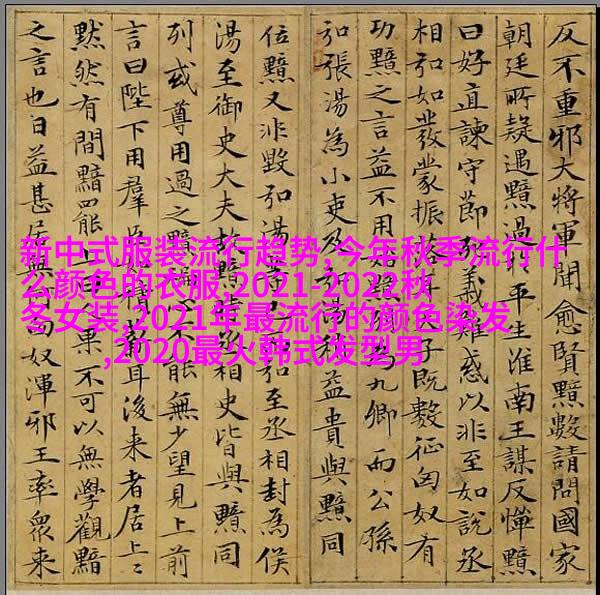 反不重邪大將軍聞愈賢黯數請問國家
朝廷所疑遇黯過於平生淮南王謀反憚黯
曰好直諫守節義難惑以非至如說丞
相弘如發蒙振子既數征匈奴有
功黯之言益不用九卿而公孫
弘張湯為小吏及弘湯益貴與黯同
位黯又非毀弘湯弘至丞相封為侯
湯至御史大夫故黯丞相史皆與黯同
列或尊用過之黯不能無少望見上前
言曰陛下用羣臣積耳後來者居上〻
默然有間黯罷上果不可以無學觀黯
之言也日益甚居無何匈奴渾邪王率眾來
新中式服装流行趋势,今年秋季流行什
么颜色的衣服,2021-2022秋
冬女装,2021年最流行的颜色染发
,2020最火韩式发型男